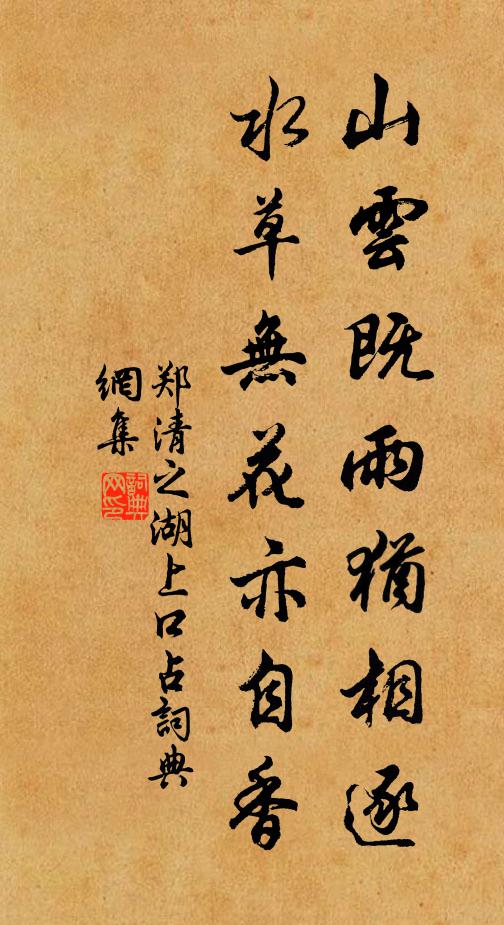 山雲既雨猶相逐
水草無花亦自香
郑清之湖上口占詞典
網集
詞典
网印